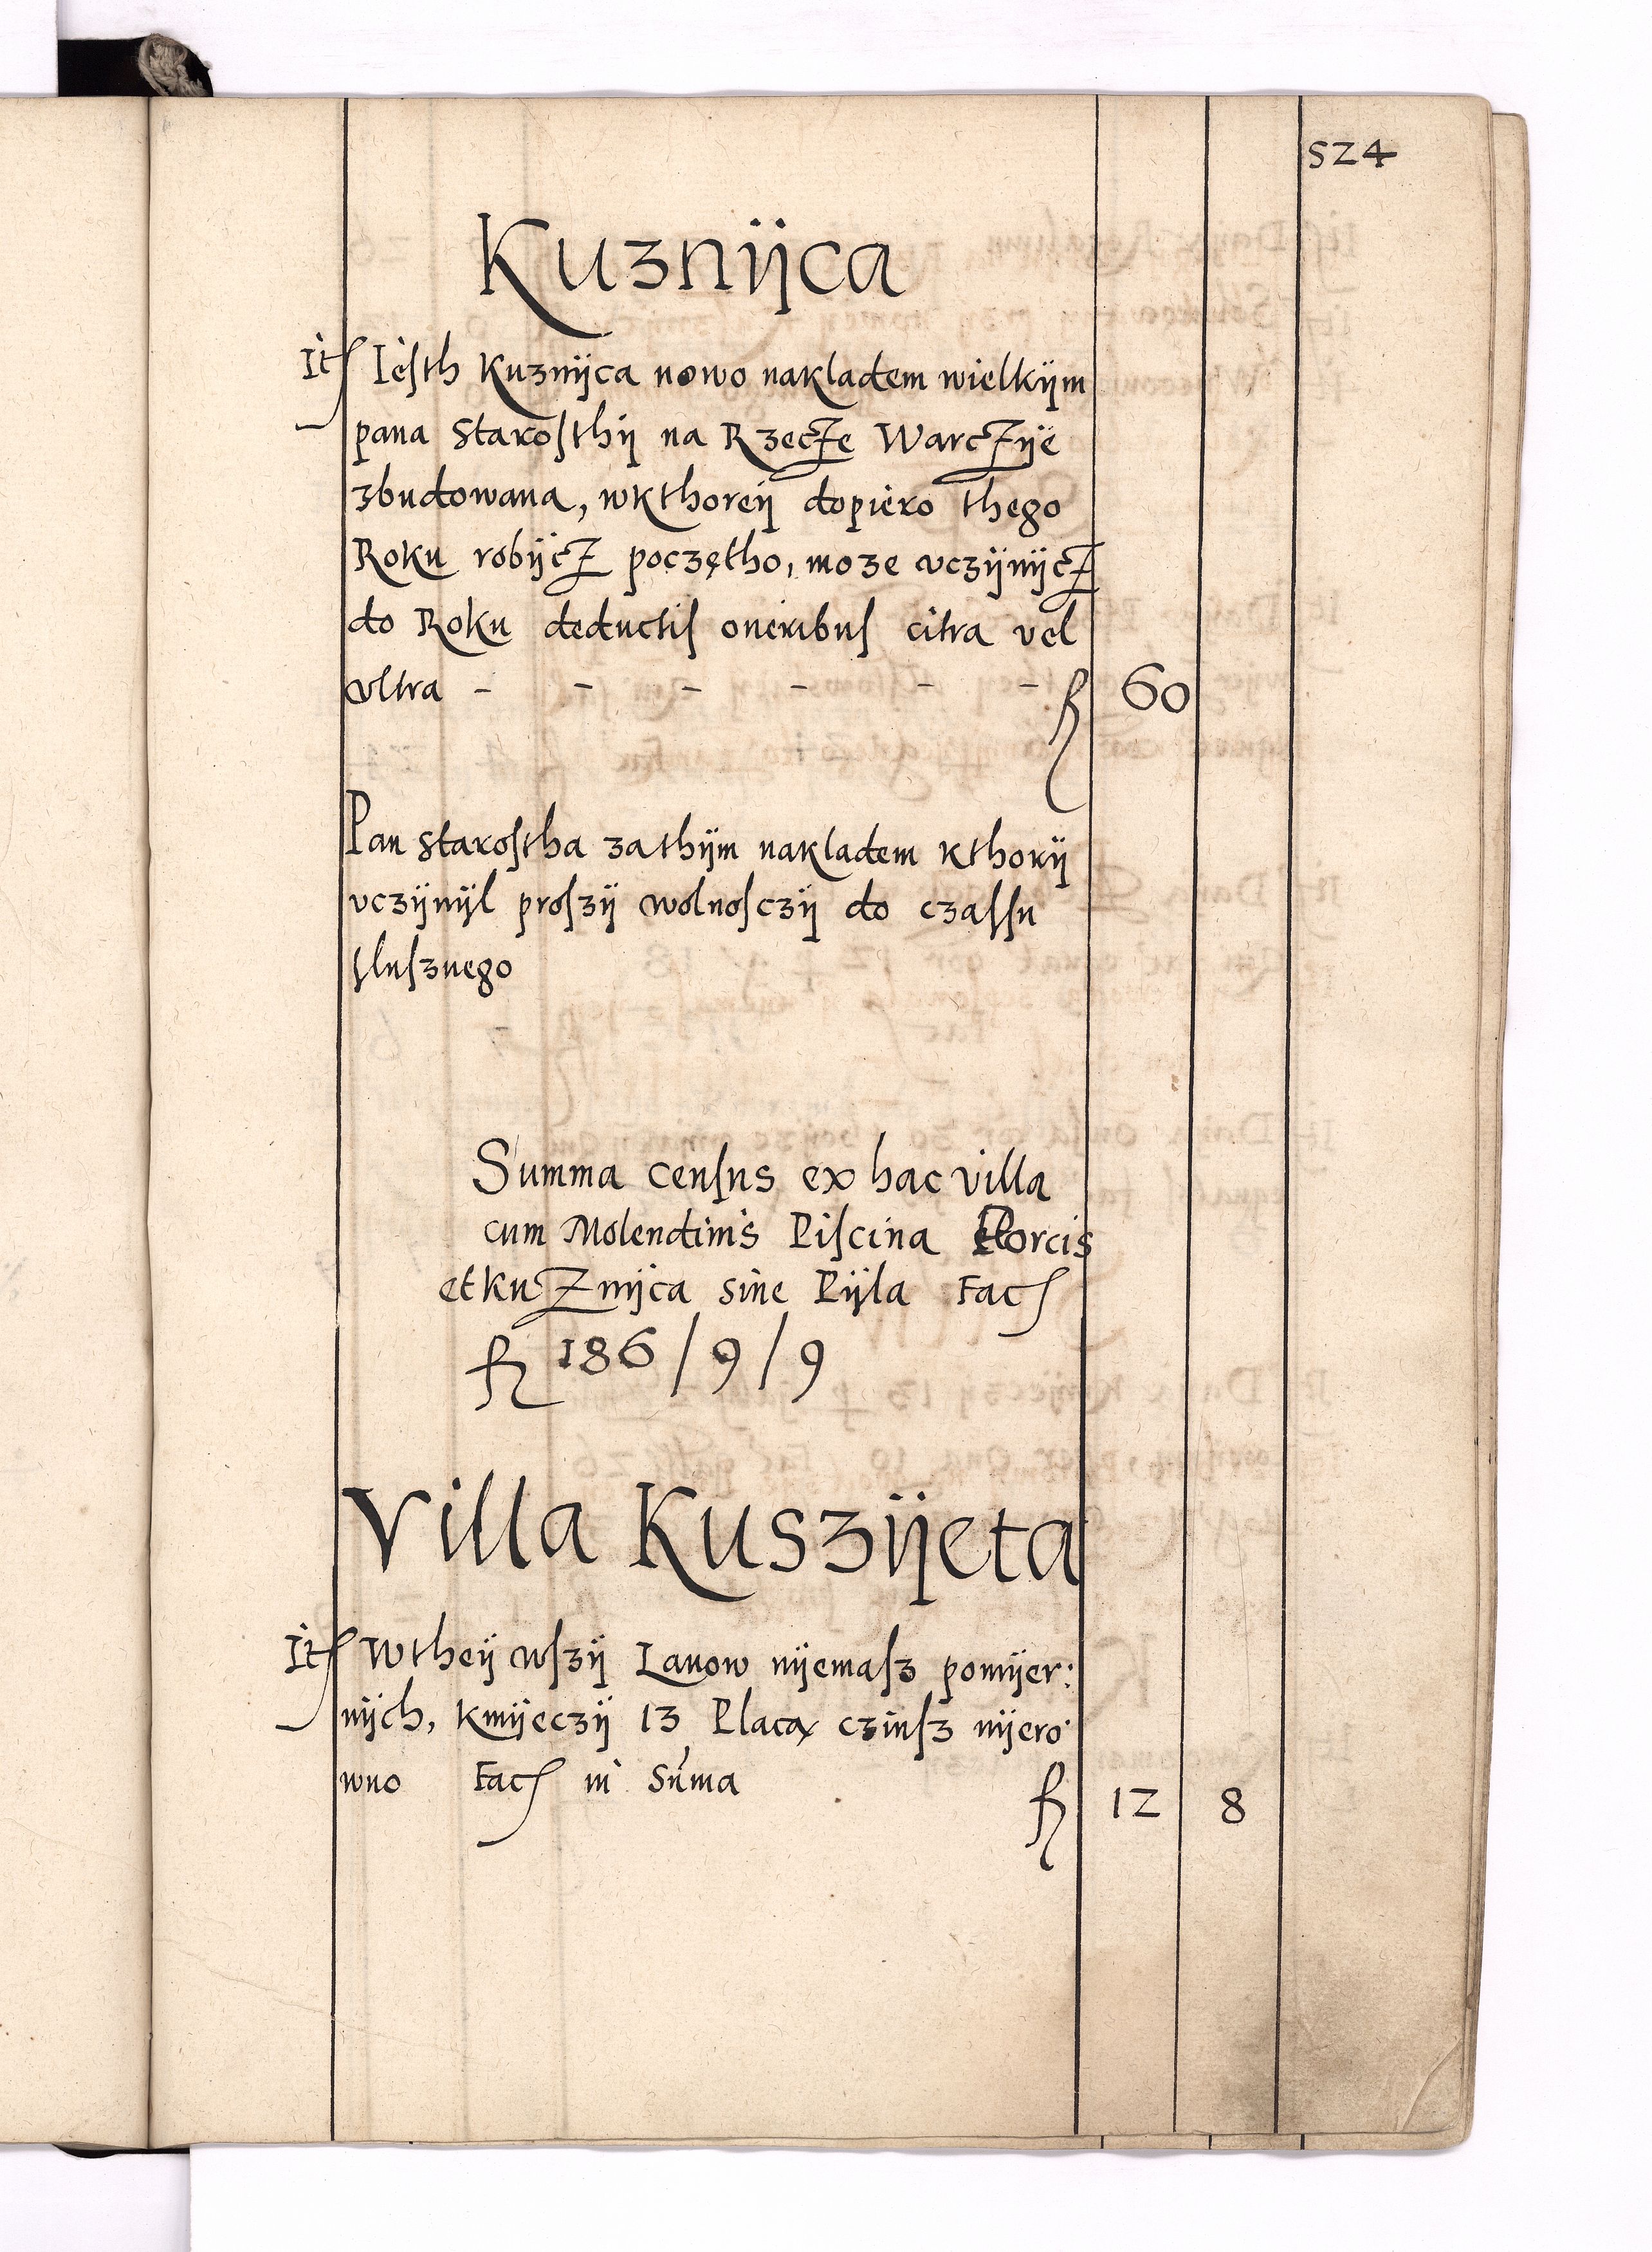 524
Kuznijca
It Iesth Kuznijca nowo nakladem wielkijm
pana Starosthij na Rzecze Warczije
zbudowana, wkthoreij dopiero thego
Roku robijcz poczętho, moze vczijnijcz
do Roku deductis oneribus citra vel
vltra - - - - - - fl 60
Pan starostha zathijm nakladem kthorij
vczijnijl proszij wolnosczij do czassu
slusznego
Summa census ex hac villa
cum Molendinis Piscina Porcis
et kuznijca sine Pijla Fac
fl 186 / 9 / 9
Villa Kuszijeta
It Wtheij wszij Lanow nijemasz pomijer:
nijch, kmijeczij 13 Placą czinsz nijero
wno Fac in Summa fl 12 8